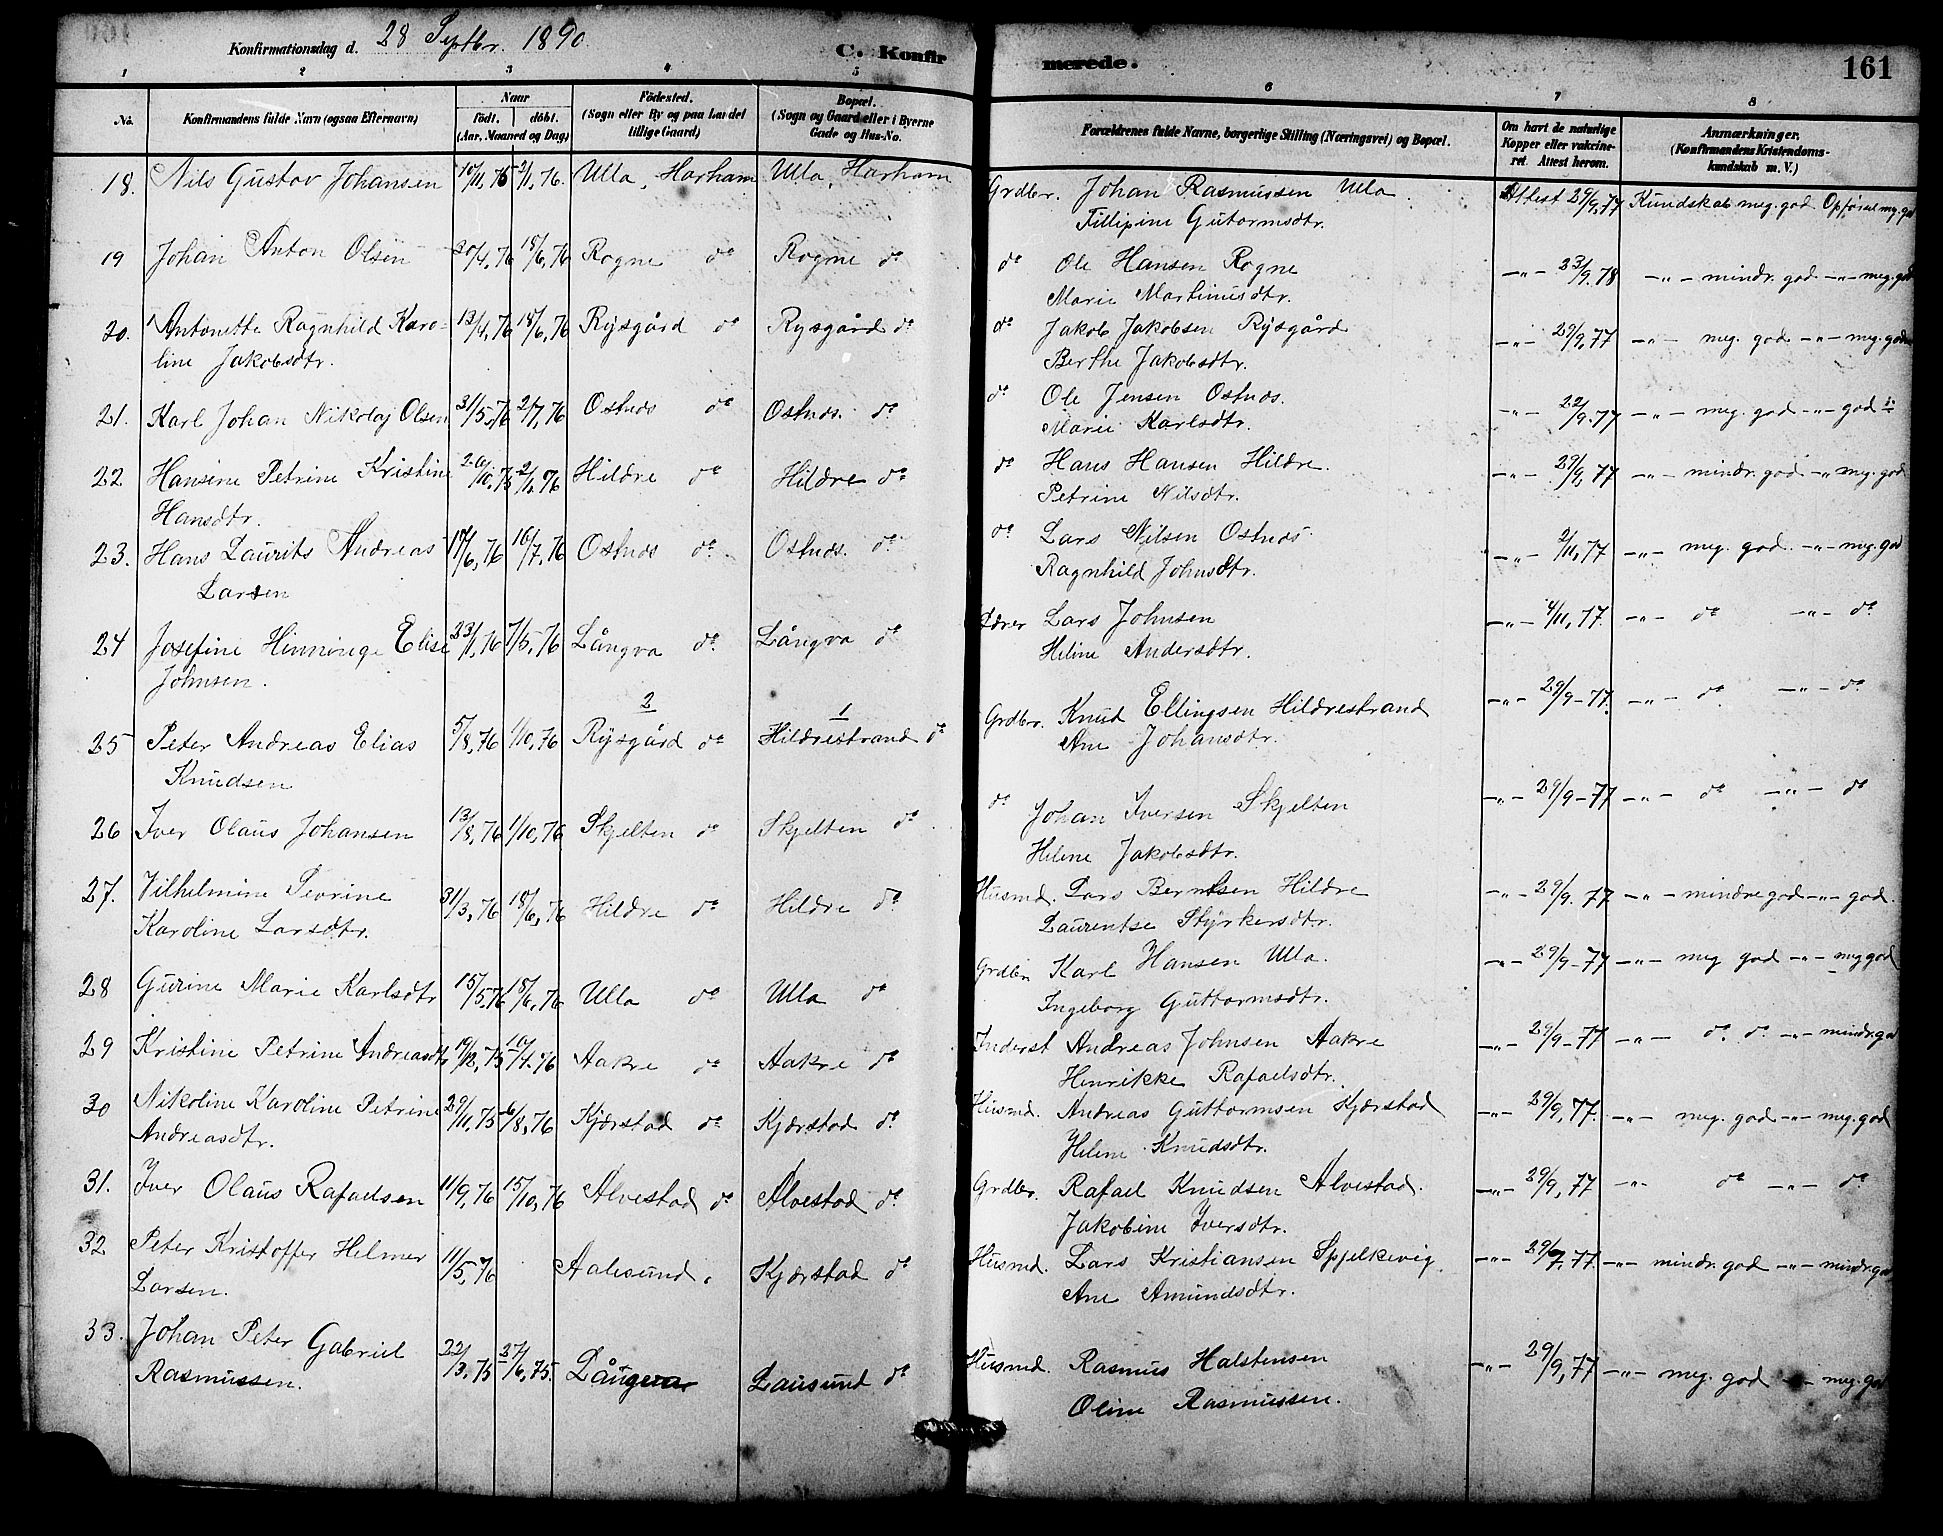 Konfirmationsdag d. 28 Septbr. 1890. C. Konfirmerede. 161
1 2 3 4 5 6 7 8
No. Konfirmandens fulde Navn (ogsaa Efternavn) Naar født. døbt. (Aar, Maaned og Dag) Födested. (Sogn eller By og paa Landet tillige Gaard) Bopæl. (Sogn og Gaard eller i Byerne Gade og Hus-No. Forældrenes fulde Navne, borgerlige Stilling (Næringsvei) og Bopæl. Om havt de naturlige Kopper eller vakcineret. Attest herom. Anmærkninger. (Konfirmandens Kristendomskundskab m. V.)
18. Nils Gustav Johansen 10/11, 75 2/1, 76. Ulla, Harham Ulla, Harham Grdbr. Johan Rasmussen Ulla Attest 29/9, 77 Kundskab meg. god Opførsel mg. god
Fillipine Gutormsdtr.
19 Johan Anton Olsen 20/4, 76 18/6, 76 Rogne do Rogne do do Ole Hansen Rogne -"- 23/9. 78 -"- mindr. god -"- meg. god
Marie Martinusdtr.
20. Antonette Ragnhild Karo- 13/4, 76 18/6, 76 Rysgård do Rysgård do do Jakob Jakobsen Rysgård -"- 29/9, 77 -"- meg. god -"- meg. god
line Jakobsdtr. Berthe Jakobsdtr.
21. Karl Johan Nikolaj Olsen 31/5, 76 2/7, 76 Ostnes do Ostnes. do do Ole Jensen Ostnes. -"- 22/9. 77 -"- meg. god -"- god
Marie Karlsdtr.
22 Hansine Petrine Kristine 26/10, 75 2/1, 76 Hildre do Hildre do do Hans Hansen Hildre. -"- 29/9, 77 -"- mindr. god -"- meg. god
Hansdtr. Petrine Nilsdtr.
23. Hans Laurits Andreas 17/6, 76 16/7, 76 Ostnes do Ostnes. do do Lars Nilsen Ostnes -"- 2/11, 77 -"- meg. god. -"- meg. god
Larsen Ragnhild Johnsdtr.
24 Josefine Hennringe Elise 23/1, 76 7/5, 76 Långva do Långva do Lærer Lars Johnsen -"- 4/11, 77. -"- do -"- do
Johnsen. Heline Andersdtr.
2 1
25 Peter Andreas Elias 5/8, 76 1/10, 76 Rysgård do Hildrestrand do Grdbr. Knud Ellingsen Hildrestrand -"- 29/9-77. -"- do -"- do
Knudsen Ane Johansdtr.
26 Iver Olaus Johansen 13/8, 76 1/10, 76 Skjelten do Skjelten do do Johan Iversen Skjelten -"- 29/9-77 -"- do -"- do
Helene Jakobsdtr.
27. Vilhelmine Sevrine 31/3, 76 18/6, 76 Hildre do Hildre do Husmd. Lars Berntsen Hildre -"- 29/9. 77 -"- mindre god -"- god.
Karoline Larsdtr. Laurentse Styrkersdtr.
28 Gurine Marie Karlsdtr 15/5, 76 18/6, 76 Ulla do Ulla do Grdbr Karl Hansen Ulla. -"- 29/9-77 -"- meg god -"- meg god
Ingeborg Guttormsdtr.
29 Kristine Petrine Andreasdtr 19/12, 75 17/4. 76 Aakre do Aakre do Inderst Andreas Johnsen Aakre -"- 29/9-77 -"- do. do -"- mindr. god
Henrikke Rafaelsdtr.
30 Nikoline Karoline Petrine 29/11, 75 6/8, 76 Kjærstad do Kjærstad do Husmd. Andreas Guttormsen Kjærstad -"- 29/9, 77. -"- meg. god -"- meg. god
Andreasdtr. Helene Knudsdtr.
31. Iver Olaus Rafaelsen 11/9, 76 15/10, 76 Alvestad do Alvestad do Grdbr. Rafael Knudsen Alvestad. -"- 29/9, 77 -"- do -"- do
Jakobine Iversdtr.
32 Peter Kristoffer Helmer 11/5, 76 Aalesund. Kjærstad do Husmd. Lars Kristiansen Spjelkevig -"- 77. -"- mindr. god -"- mindr. god
Larsen. Ane Amundsdtr.
33. Johan Peter Gabriel 22/3, 75 27/6, 75. Långva Lausund do Husmd. Rasmus Halstensen -"- 29/9, 77 -"- meg. god -"- meg. god
Rasmussen. Oline Rasmussen.